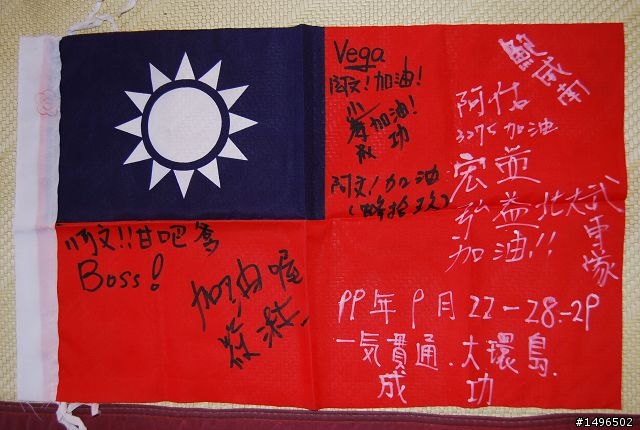 Vega
阿文!加油!
加油!
功
阿文!加油
阿文!!甘吧爹
Boss!
加油喔
鮑威南
阿佑
3275加油
宏益
弘益
加油!!
北大武
車隊
99年9月22-28.-29
一気貫通.大環島.
成功
#1496502